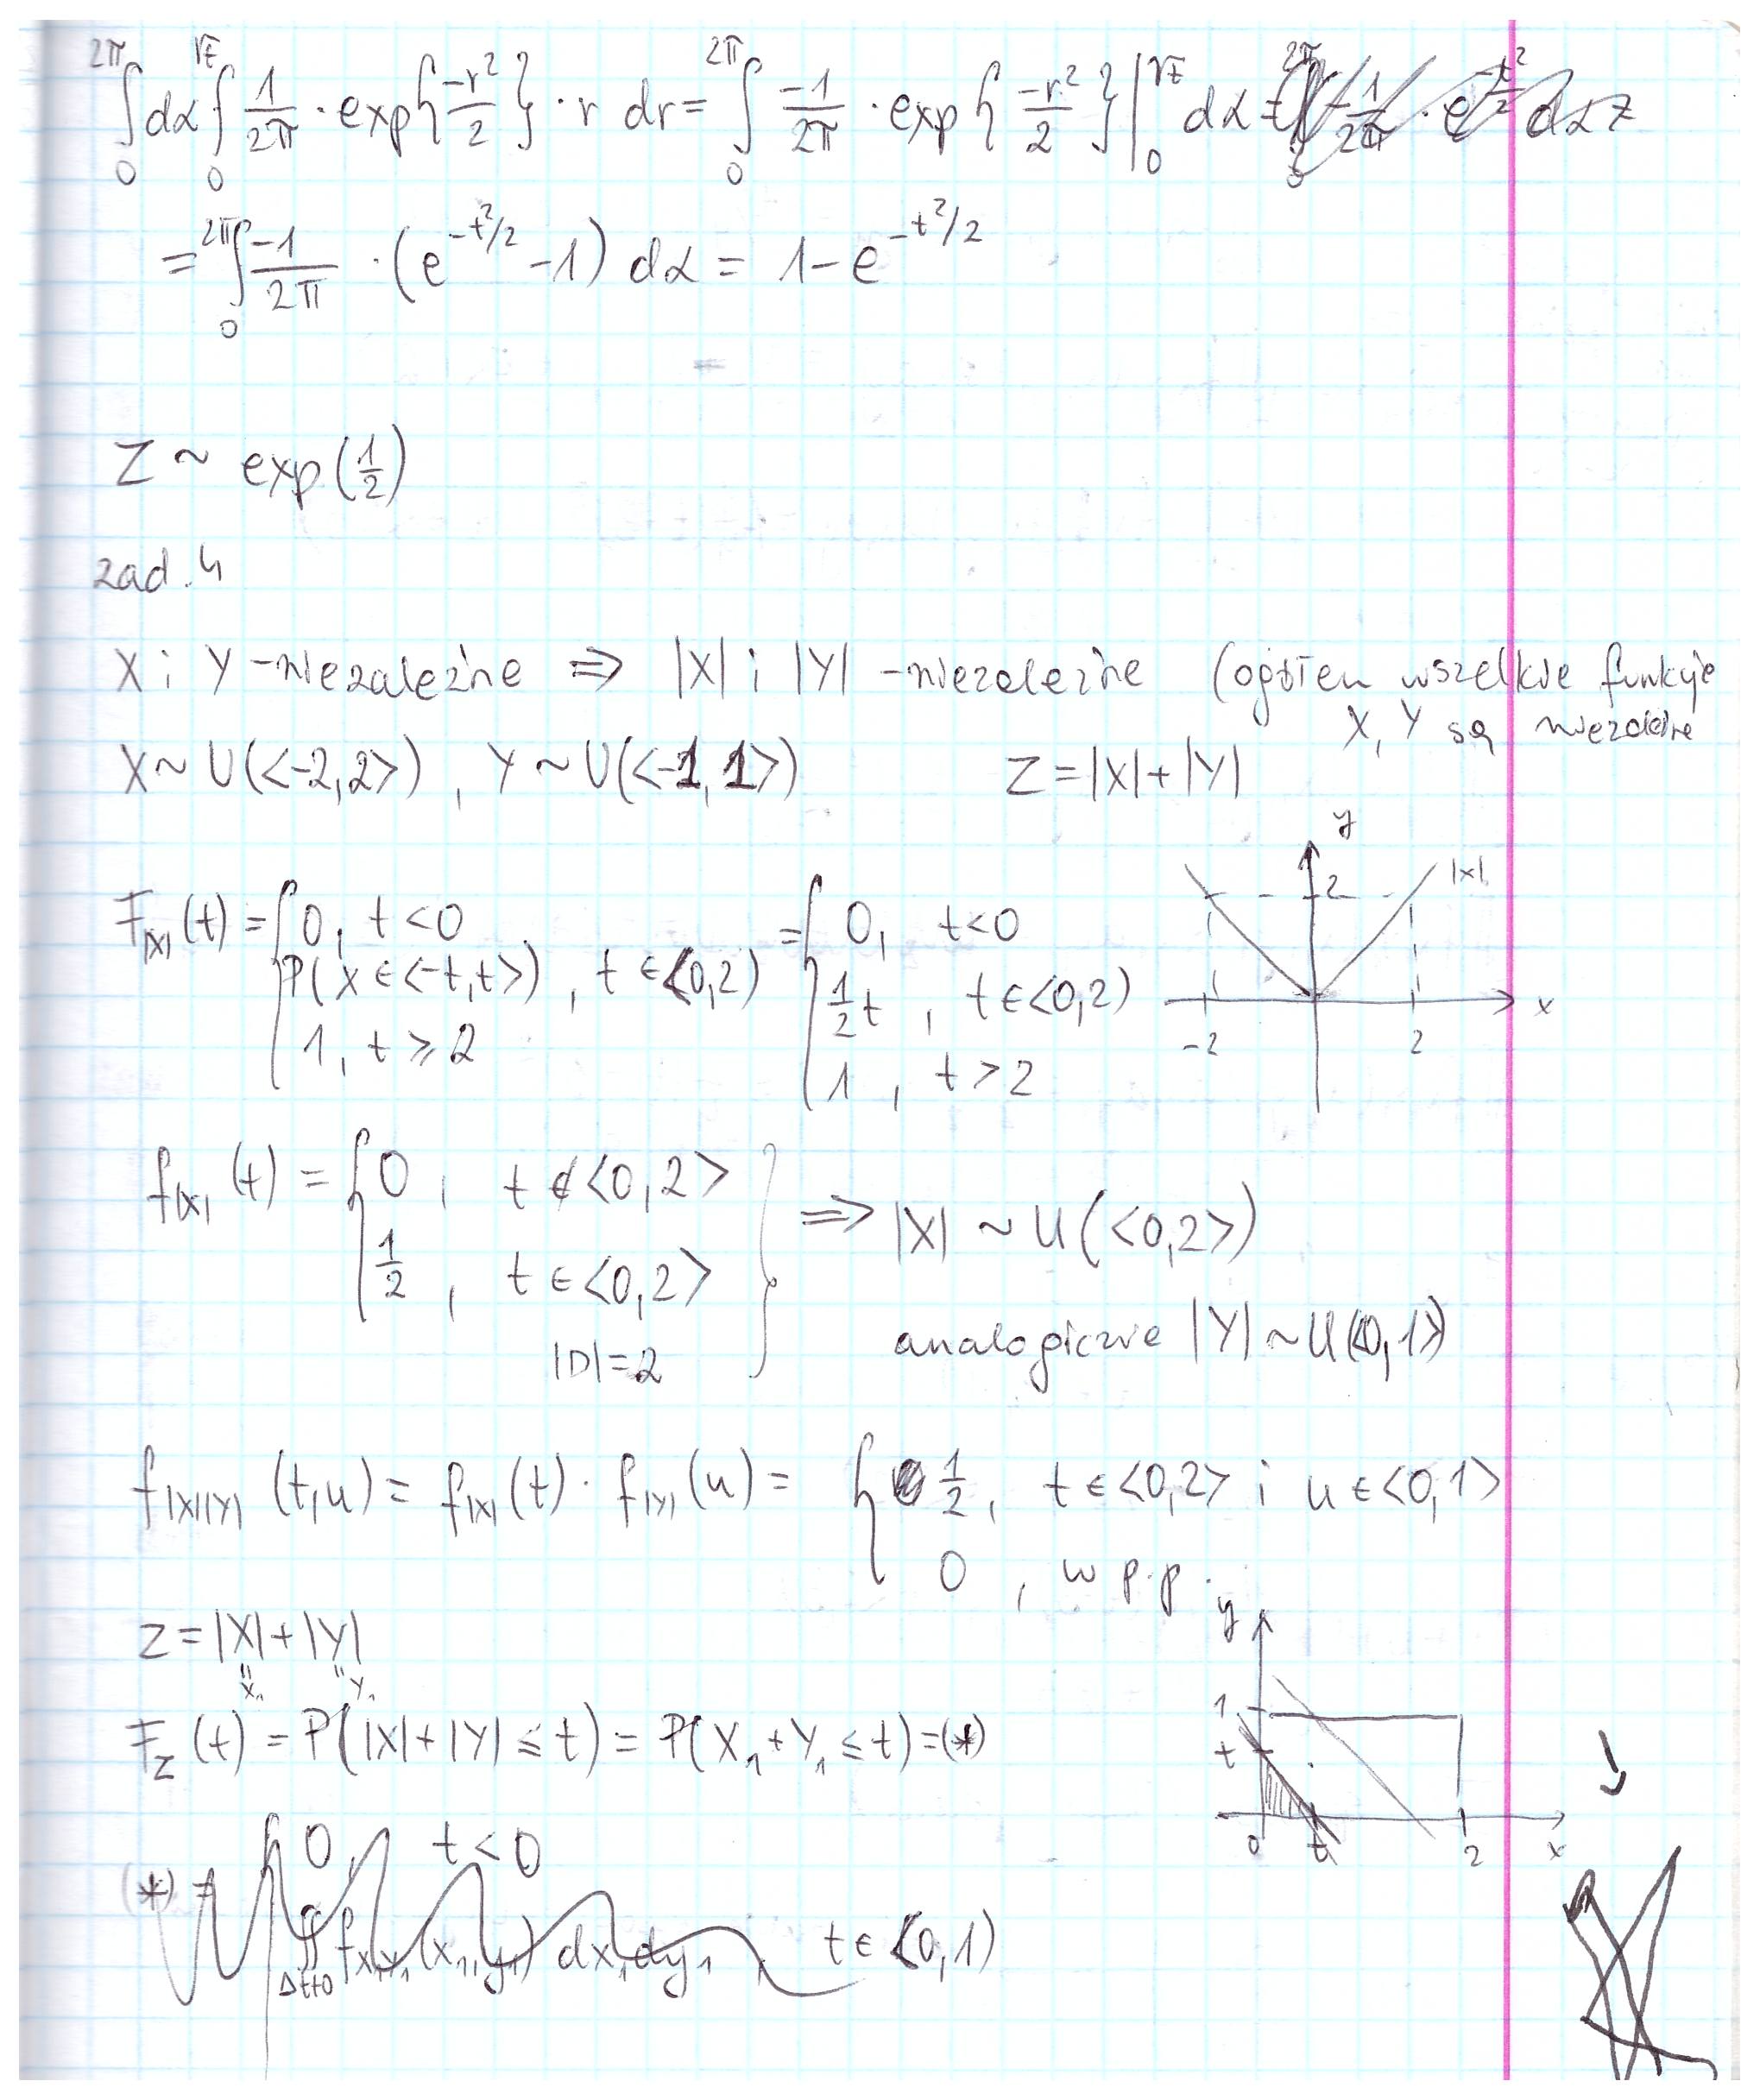 2π∫0 dα √t∫0 1/2π · exp{-r²/2} · r dr = 2π∫0 -1/2π · exp{-r²/2}|0^√t dα
= 2π∫0 -1/2π · (e^-t²/2 -1) dα = 1-e^-t²/2
Z ~ exp(1/2)
zad. 4
X i Y - niezależne ⇒ |X| i |Y| - niezależne (ogółem wszelkie funkcje
X, Y są niezależne
X ~ U(<-2,2>), Y ~ U(<-1,1>) Z = |X|+|Y|
F|X|(t) = { 0, t<0 = { 0, t<0
P(X∈<-t,t>), t∈<0,2) 1/2 t, t∈<0,2)
1, t≥2 1, t>2
y
2 |x|
-2 2 x
f|X|(t) = { 0, t∉<0,2>
1/2, t∈<0,2> } ⇒ |X| ~ U(<0,2>)
|D|=2 analogicznie |Y| ~ U(<0,1>)
f|X||Y|(t,u) = f|X|(t) · f|Y|(u) = { 1/2, t∈<0,2> i u∈<0,1>
0, w p.p.
Z = |X|+|Y|
"X₁ "Y₁
F_Z(t) = P(|X|+|Y| ≤ t) = P(X₁+Y₁ ≤ t) = (*)
y
1
t
0 t 2 x
(*) = { 0, t<0
∬Δt+0 f_X₁Y₁(x₁,y₁) dx₁dy₁, t∈<0,1)